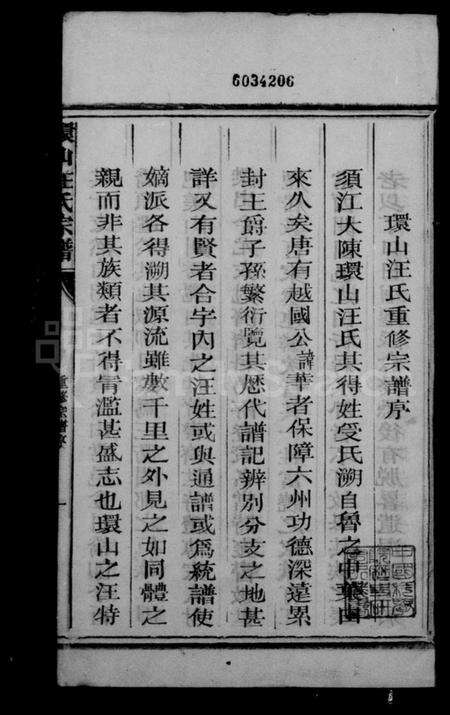 6034206
環山汪氏重修宗譜序
須江大陳環山汪氏其得姓受氏溯自魯之中葉由
來久矣唐有越國公諱華者保障六州功德深遠累
封王爵子孫繁衍覽其歷代譜記辨別分支之地甚
詳又有賢者合宇內之汪姓或與通譜或爲統譜使
嫡派各得溯其源流雖數千里之外見之如同體之
親而非其族類者不得冐濫甚盛志也環山之汪特
環山汪氏宗譜